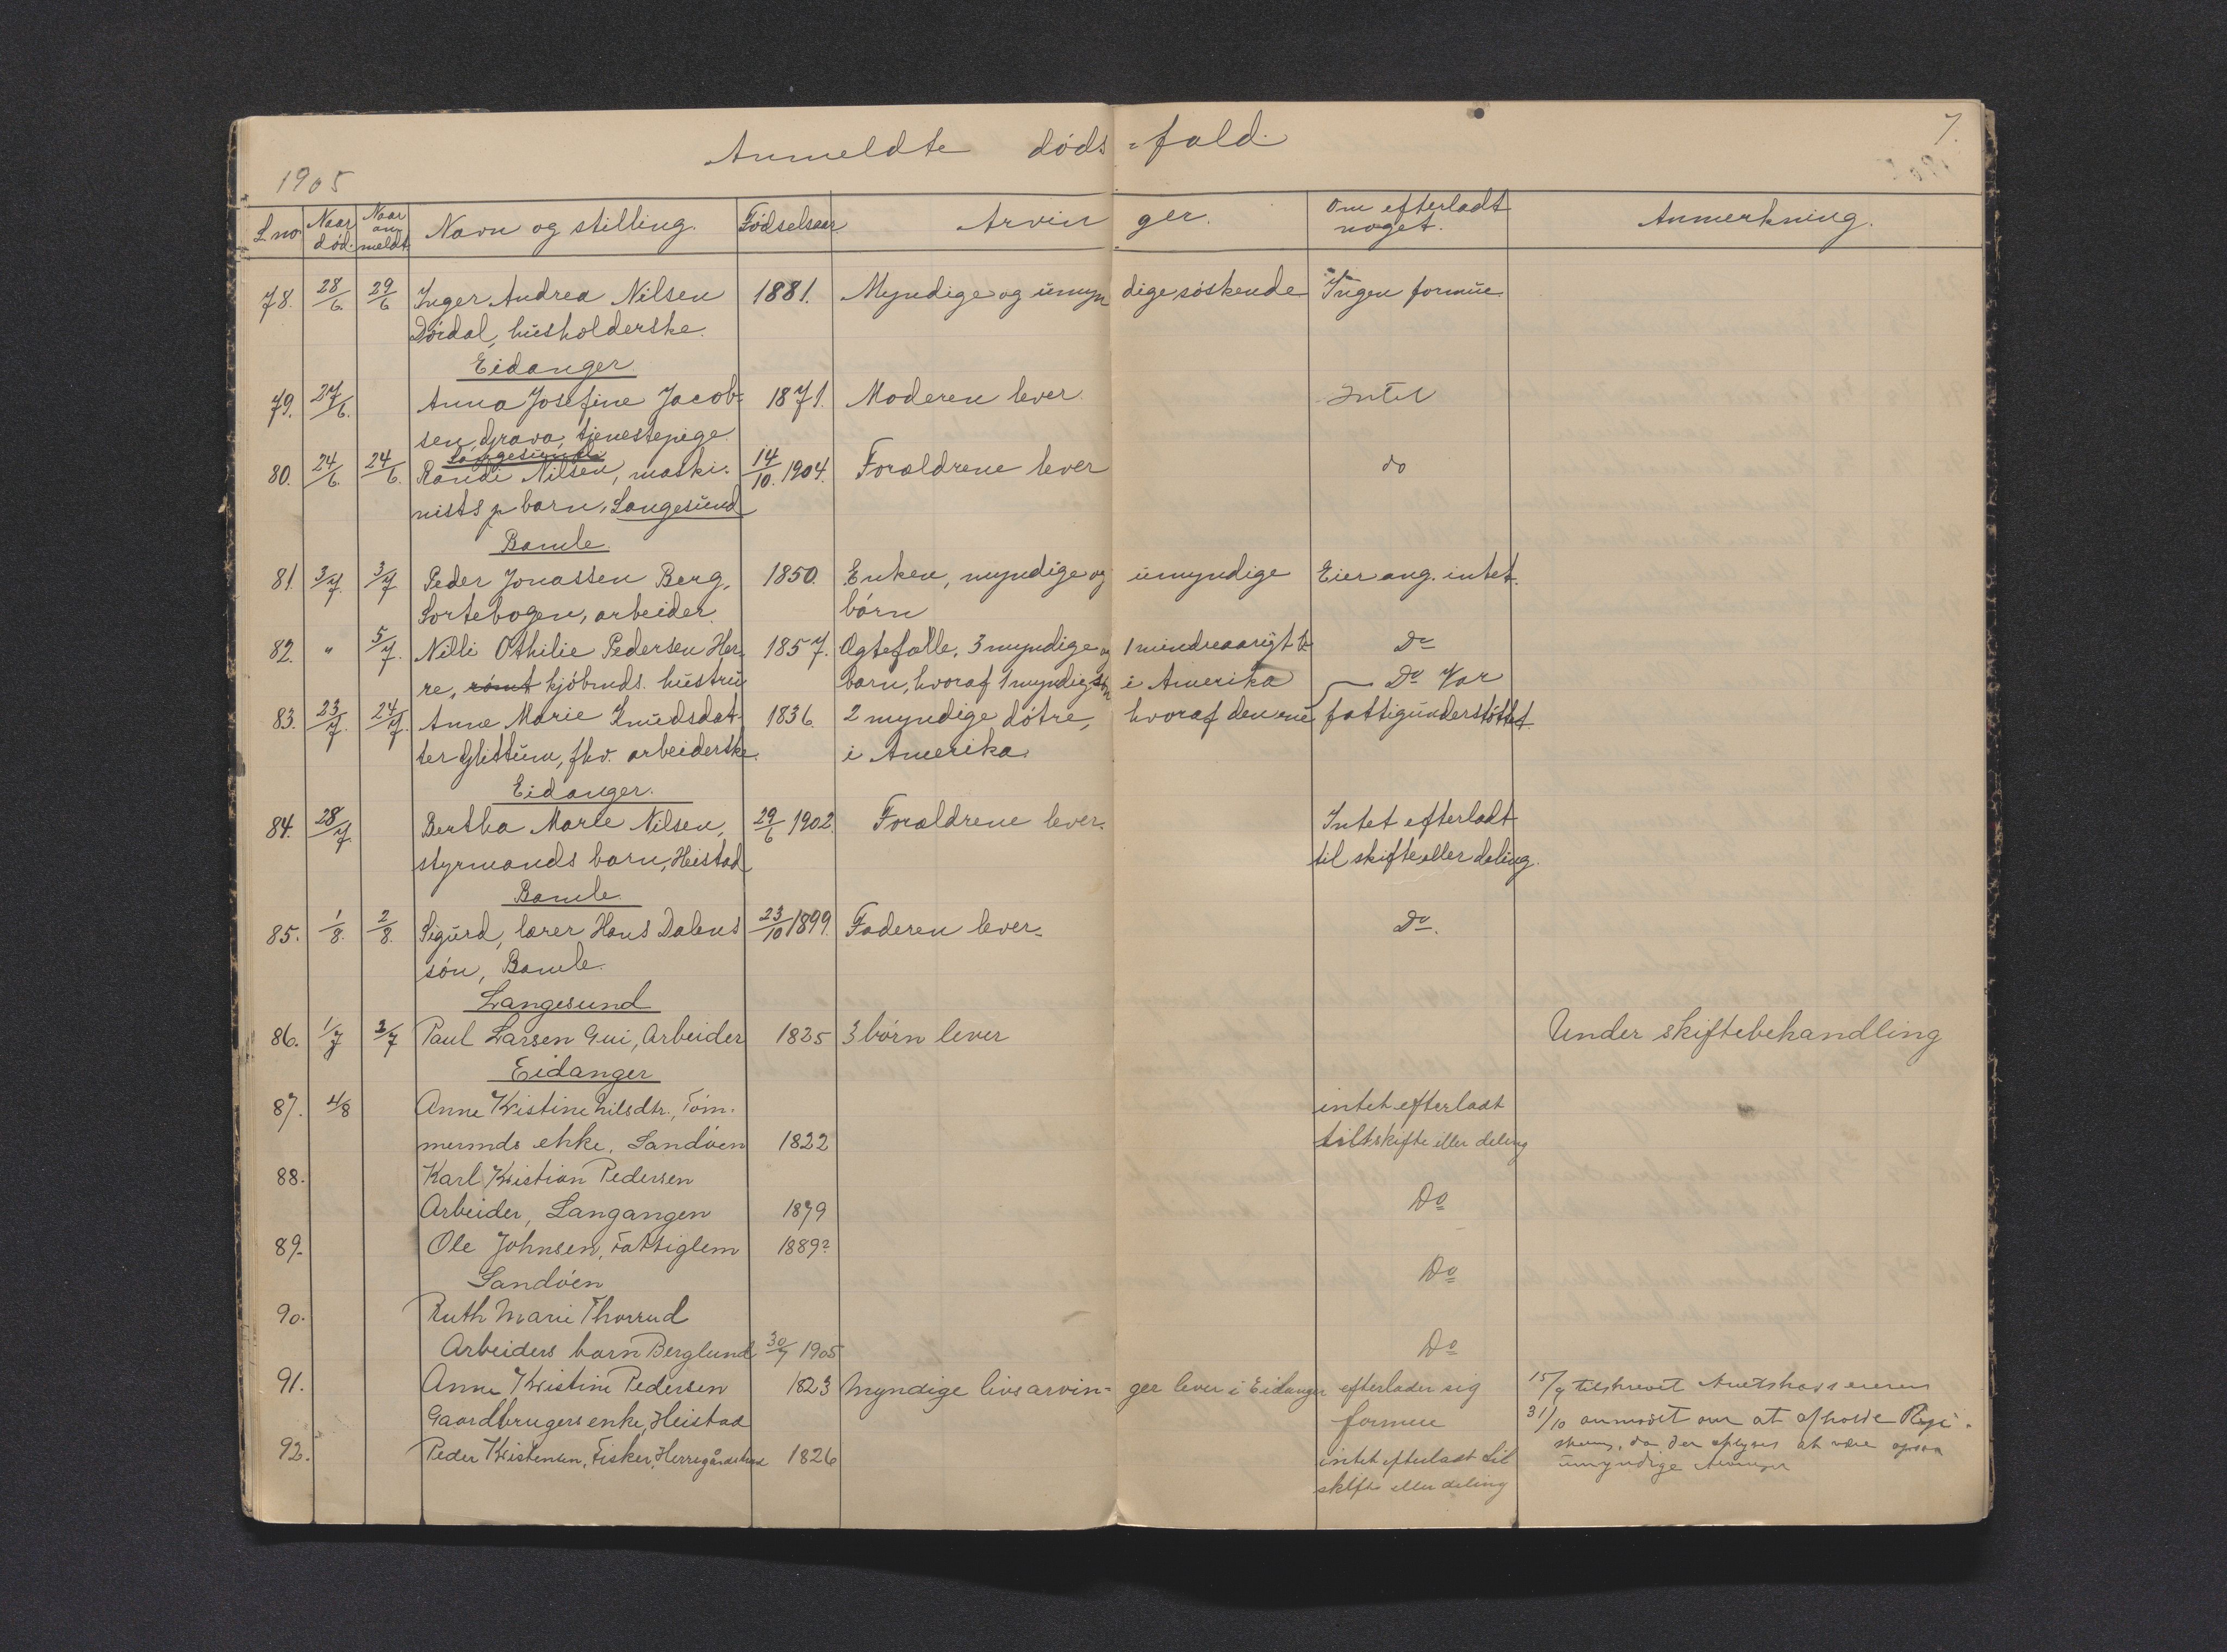 Anmeldte døds=fald.
7.
1905
L.no Naar død. Naar an- meldt Navn og stilling. Fødselsaar. Arvin ger. Om efterladt noget. Anmerkning.
78. 28/6. 29/6 Inger Andrea Nilsen 1881. Myndige og umyn dige søskende Ingen formue
Dördal, husholderske.
Eidanger.
79. 27/6. Anna Josefine Jacob- 1871. Moderen lever. Intet
sen, Grava, tjenestepige.
Langesund
80. 24/6. 24/6. Randi Nilsen, maski- 14/10. 1904. Forældrene lever do
nists p barn, Langesund
Bamle.
81. 3/7. 3/7 Peder Jonassen Berg, 1850. Enken, myndige og umyndige Eier ang. intet.
Sortebogen, arbeider. børn
82. " 5/7. Nilli Othilie Pedersen Her- 1857. Ægtefælle, 3 myndige og 1 mindreaarigt Do
re, rømt kjøbmds. hustru barn, hvoraf 1 myndig i Amerika Do Var
83. 23/7. 24/7. Anne Marie Knudsdat- 1836. 2 myndige døtre, hvoraf den ene fattigunderstøttet.
ter Glittum, fhv. arbeiderske. i Amerika.
Eidanger.
84. 28/7. Bertha Marie Nilsen, 29/6 1902. Forældrene lever. Intet efterladt
styrmands barn, Heistad til skifte eller deling.
Bamle.
85. 1/8. 2/8. Sigurd, lærer Hans Dalens 23/10 1899. Faderen lever. Do.
søn, Bamle.
Langesund
86. 1/7 3/7 Paul Larsen Gui, Arbeider 1825 3 børn lever Under skiftebehandling
Eidanger
87. 4/8 Anne Kristine Nilsdtr., Tøm- intet efterladt
mermds enke, Sandøen 1822 til skifte eller deling
88. Karl Kristian Pedersen
Arbeider, Langangen 1879 Do
89. Ole Johnsen, Fattiglem 1889?
Sandøen Do
90. Ruth Marie Thorrud
Arbeiders barn Berglund 30/7 1905 Do
91. Anne Kristine Pedersen 1823 Myndige livsarvin- ger lever i Eidanger efterlader sig 15/9 tilskrevet Amtskassereren
Gaardbrugers enke, Heistad formue 31/10 anmodet om at afholde Regi-
92. Peder Kristensen, Fisker, Herregårdstrand 1826 intet efterladt til da der oplyses at være ogsaa
skifte eller deling umyndige Arvinger